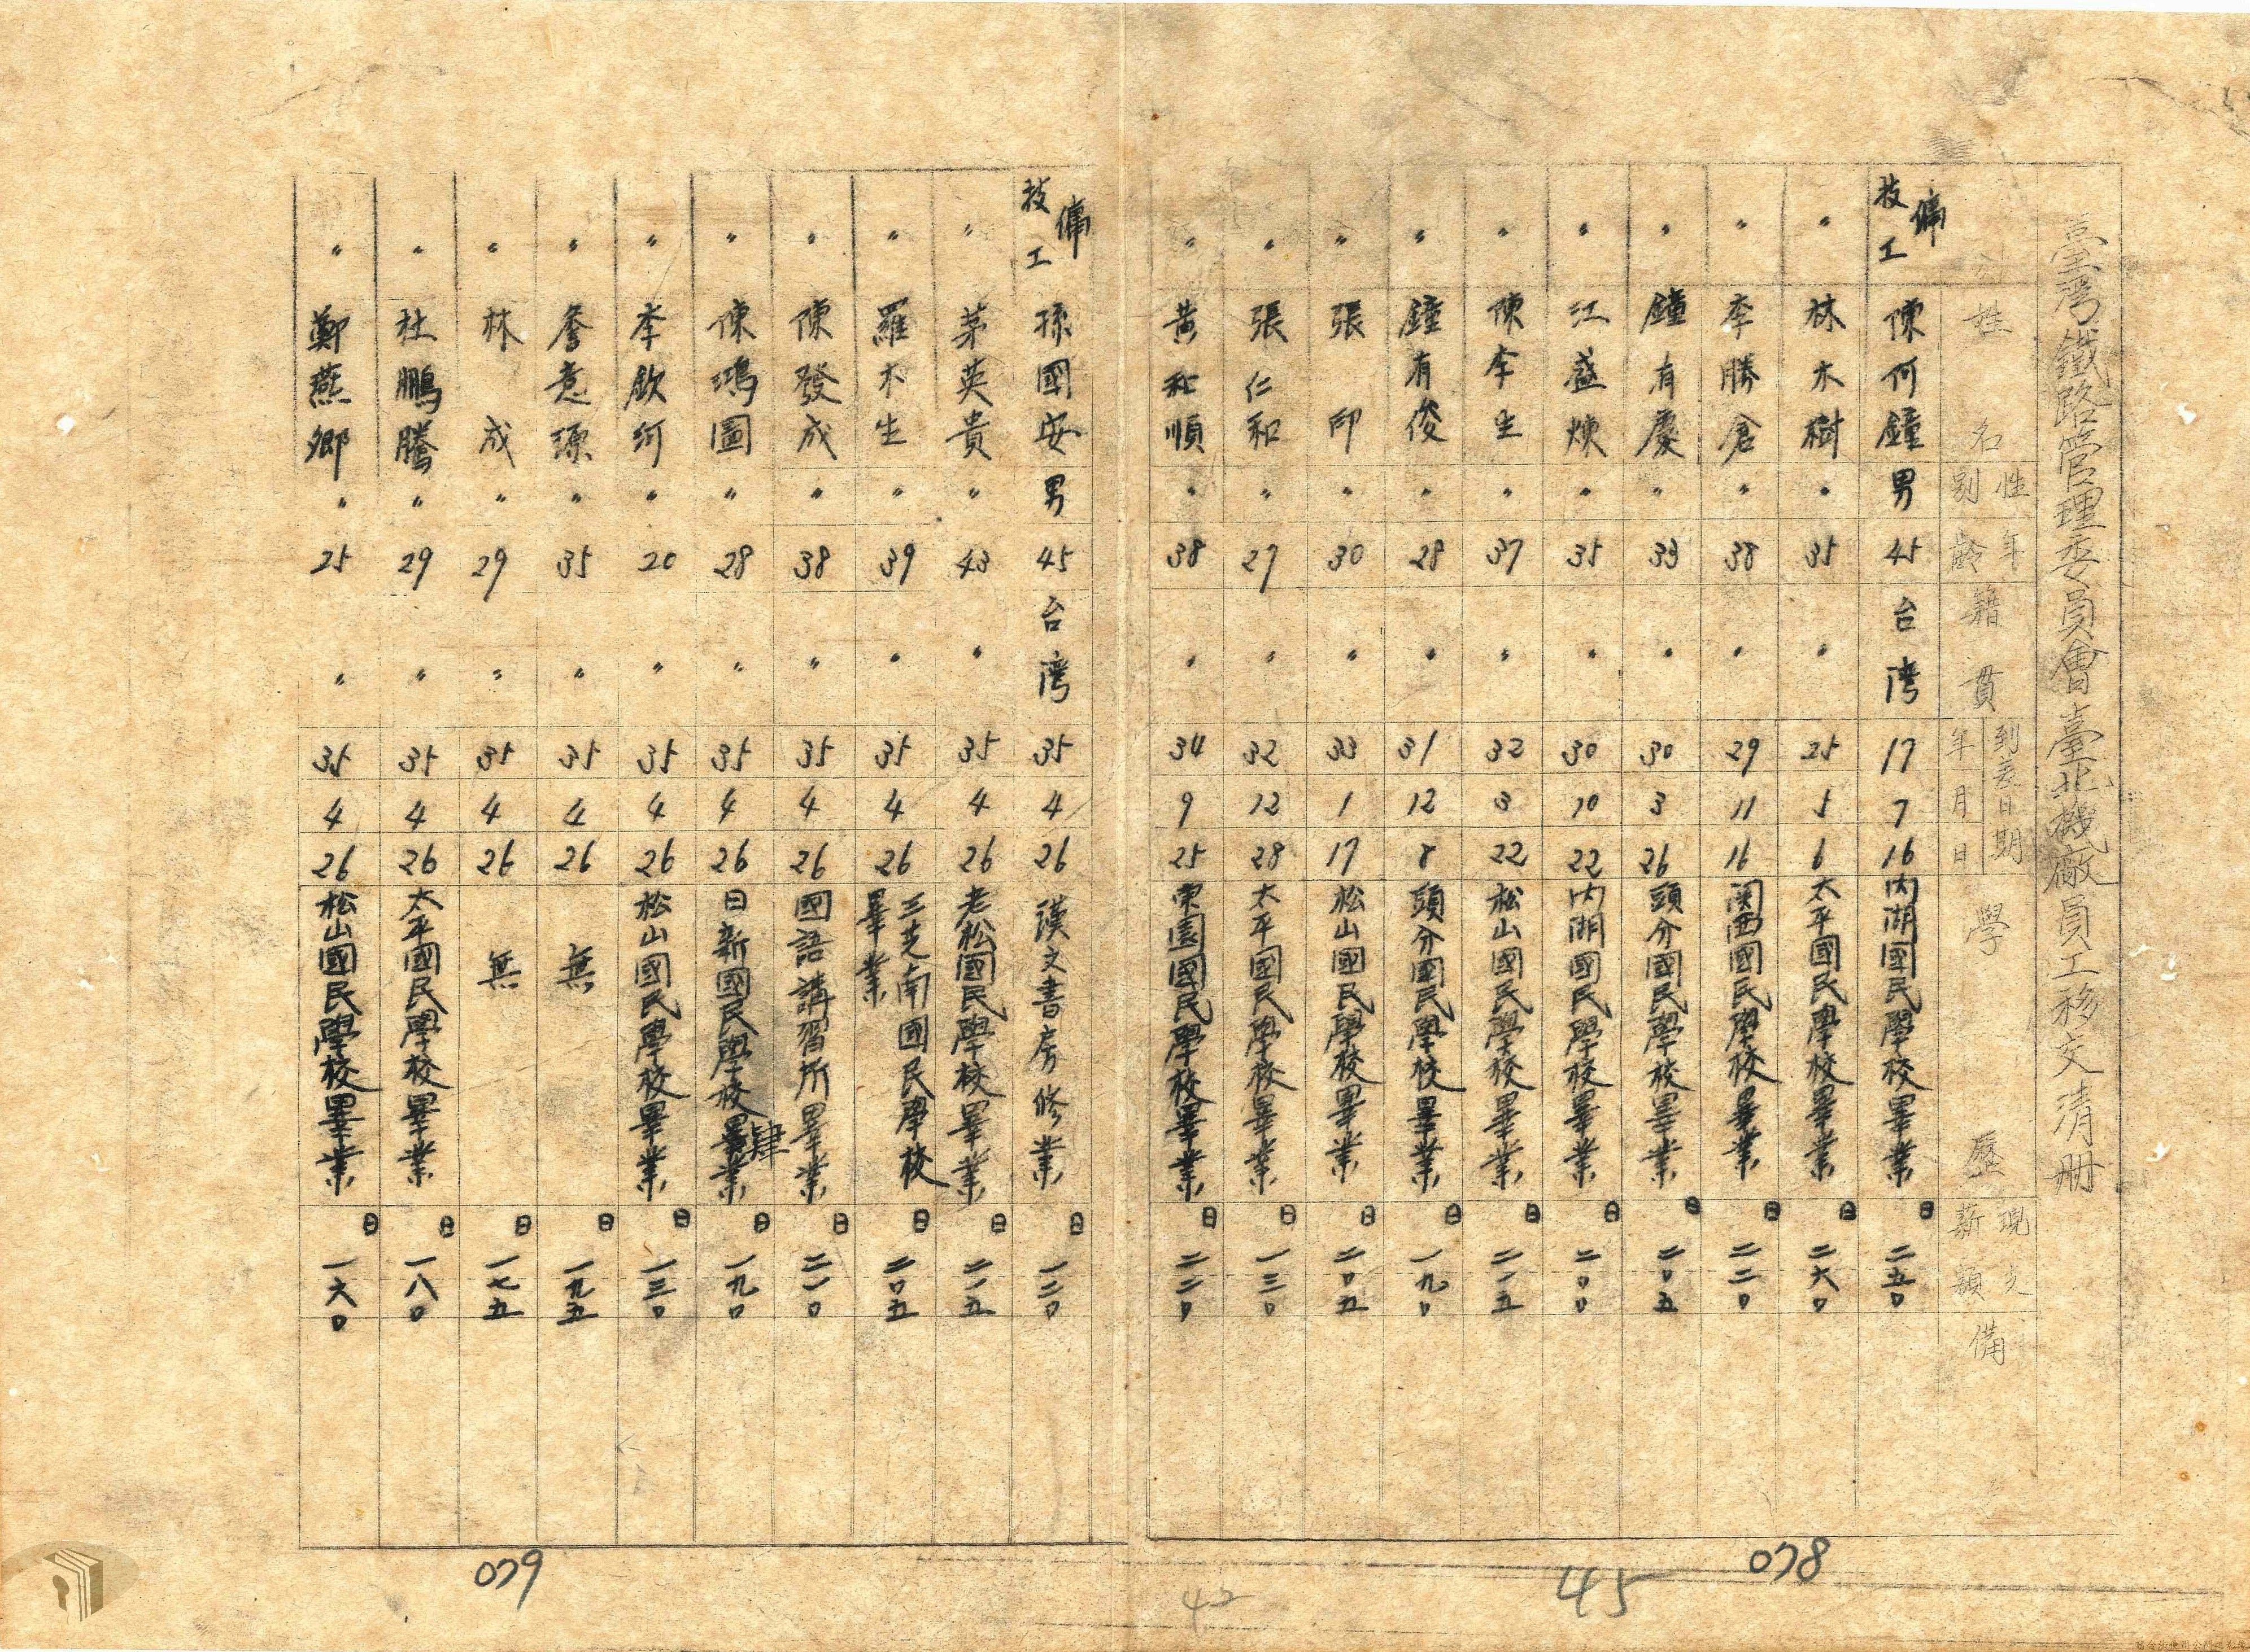 臺灣鐵路管理委員會臺北機廠員工移交清册
姓名 性別 年齡 籍貫 到差日期 年 月 日 學歷 現支薪額 備
傭 技工 陳何鐘 男 45 台灣 17 7 16 內湖國民學校畢業 日 二五〇
〃 林木樹 〃 35 〃 25 5 6 太平國民學校畢業 日 二六〇
〃 李勝倉 〃 38 〃 29 11 16 関西國民學校畢業 日 二二〇
〃 鐘有慶 〃 33 〃 30 3 26 頭分國民學校畢業 日 二〇五
〃 江盛煉 〃 35 〃 30 10 22 內湖國民學校畢業 日 二〇〇
〃 陳李生 〃 37 〃 32 3 22 松山國民學校畢業 日 二一五
〃 鐘有俊 〃 28 〃 31 12 8 頭分國民學校畢業 日 一九〇
〃 張印 〃 30 〃 33 1 17 松山國民學校畢業 日 二〇五
〃 張仁和 〃 27 〃 32 12 28 太平國民學校畢業 日 一三〇
〃 黃和順 〃 38 〃 34 9 25 東園國民學校畢業 日 二二〇
078
45
42
傭 技工 孫國安 男 45 台灣 35 4 26 漢文書房修業 日 一二〇
〃 茅英貴 〃 43 〃 35 4 26 老松國民學校畢業 日 二一五
〃 羅木生 〃 39 〃 35 4 26 三芝南國民學校畢業 日 二〇五
〃 陳發成 〃 38 〃 35 4 26 國語講習所畢業 日 二一〇
〃 陳鴻圖 〃 28 〃 35 4 26 日新國民學校畢業 肆 日 一九〇
〃 李欽河 〃 20 〃 35 4 26 松山國民學校畢業 日 一三〇
〃 詹意源 〃 35 〃 35 4 26 無 日 一九五
〃 林成 〃 29 〃 35 4 26 無 日 一七五
〃 杜鵬騰 〃 29 〃 35 4 26 太平國民學校畢業 日 一八〇
〃 鄭燕鄉 〃 25 〃 35 4 26 松山國民學校畢業 日 一六〇
079